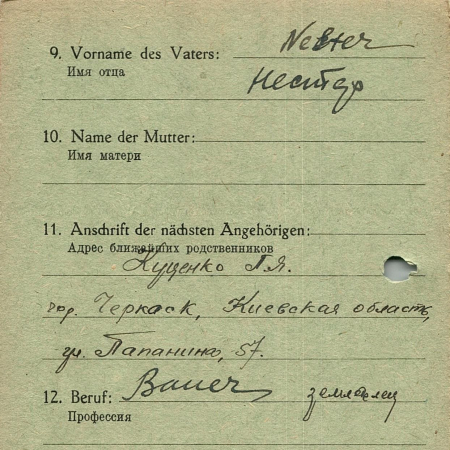 9. Vorname des Vaters: Nester
Имя отца
Нестер
10. Name der Mutter:
Имя матери
11. Anschrift der nächsten Angehörigen:
Адрес ближайших родственников
Куценко П.Я.
гор. Черкаск, Киевская область,
ул. Папанина, 57.
12. Beruf: Bauer земледелец
Профессия